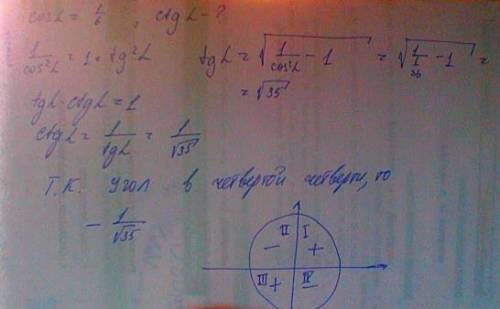 cos α = 1/6, ctg α - ?
1/cos²α = 1 + tg²α  tg α = √(1/cos²α - 1) = √(1/(1/36) - 1) =
= √35
tg α · ctg α = 1
ctg α = 1/tg α = 1/√35
Т.К. угол в четвертой четверти, то
- 1/√35
II I
- +
III + IV -